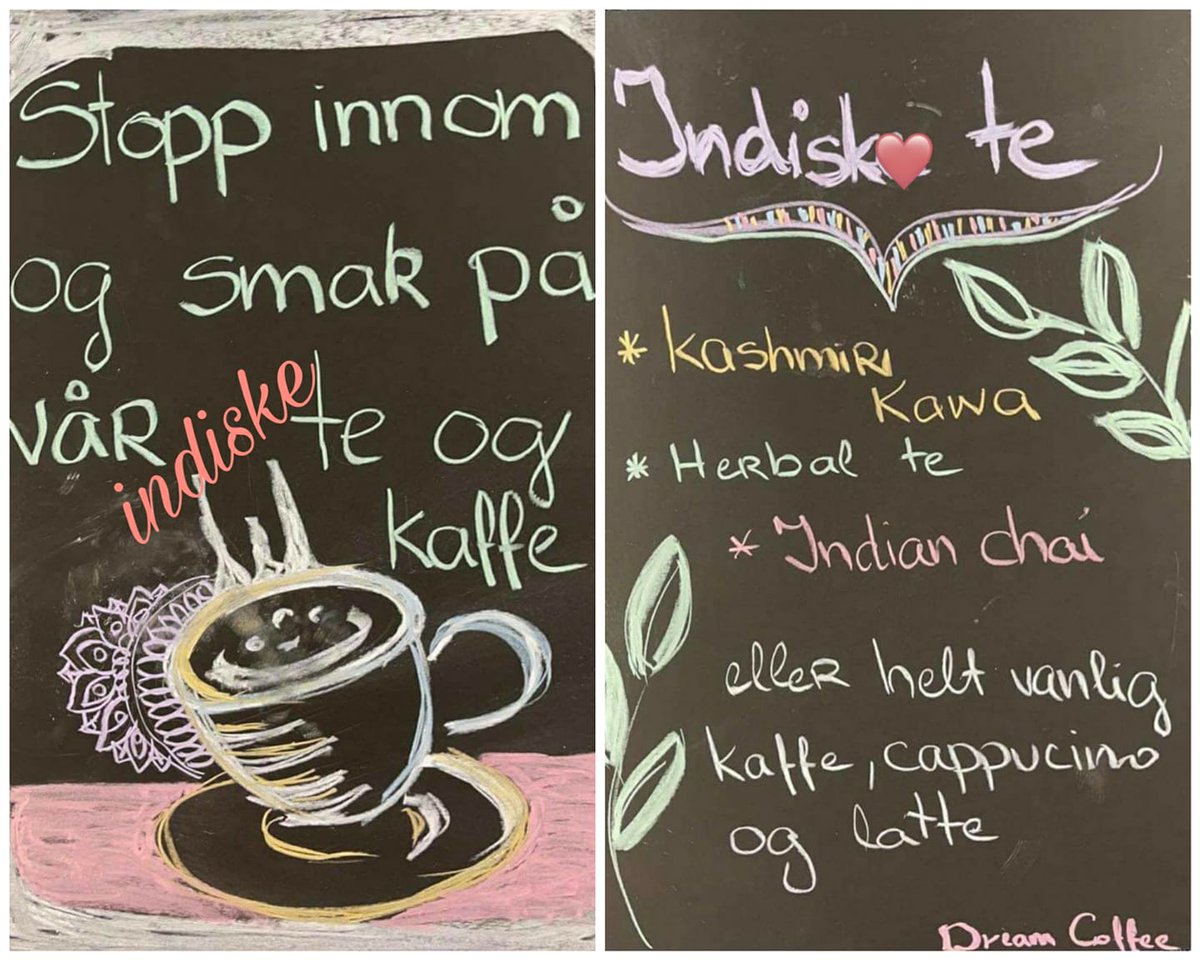 Stopp innom
og smak på
vår indiske te og
kaffe
Indisk te
* Kashmiri
Kawa
* Herbal te
* Indian chai
eller helt vanlig
kaffe, cappucino
og latte
Dream Coffee